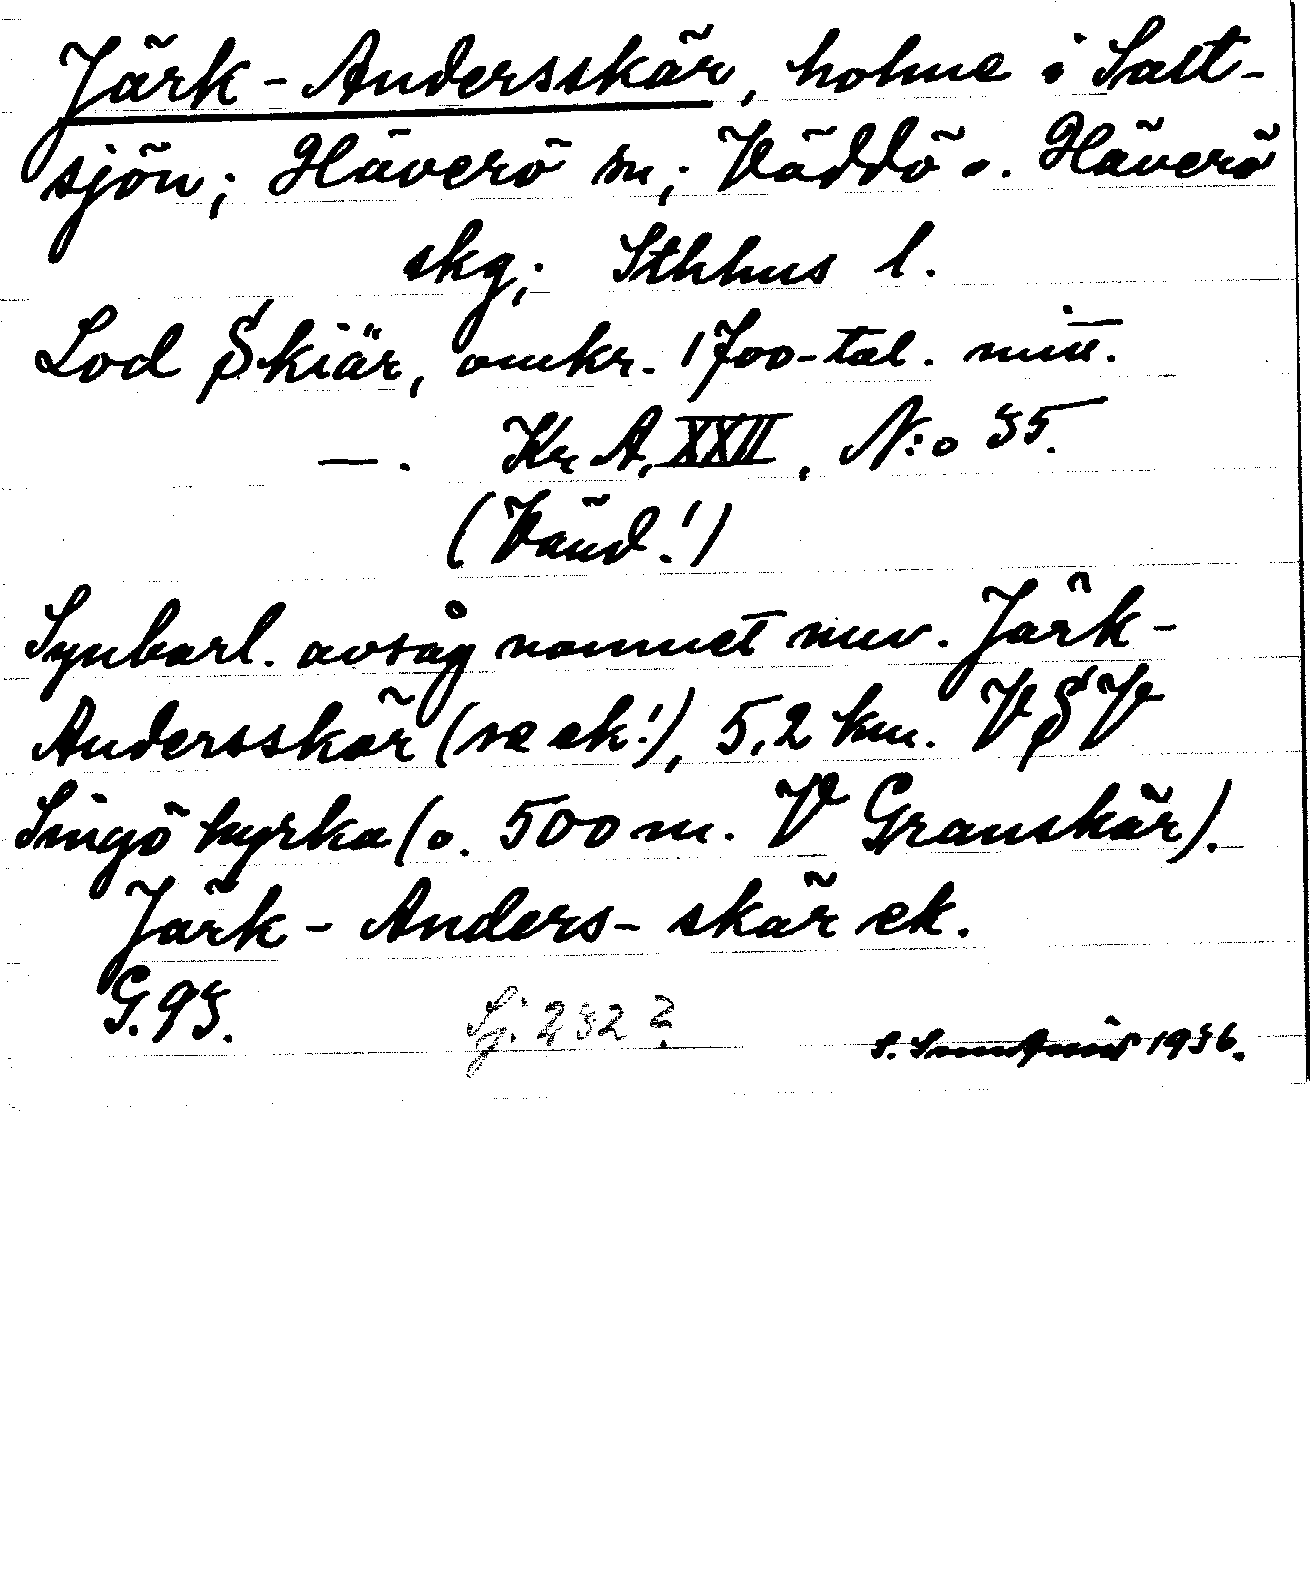 Järk-Andersskär, holme i Salt-
sjön; Häverö sn; Väddö o. Häverö
skg; Sthlms l.
Lod Skiär, omkr. 1700-tal. mitt.
—. Kr A, XXII, N:o 35.
(Vänd!)
Synbarl. avsåg namnet nuv. Järk-
Andersskär (se ek!), 5,2 km. VSV
Singö kyrka (o. 500 m. V Granskär).
Järk-Anders-skär ek.
G. 93. Sj. 232?
S. 1936.